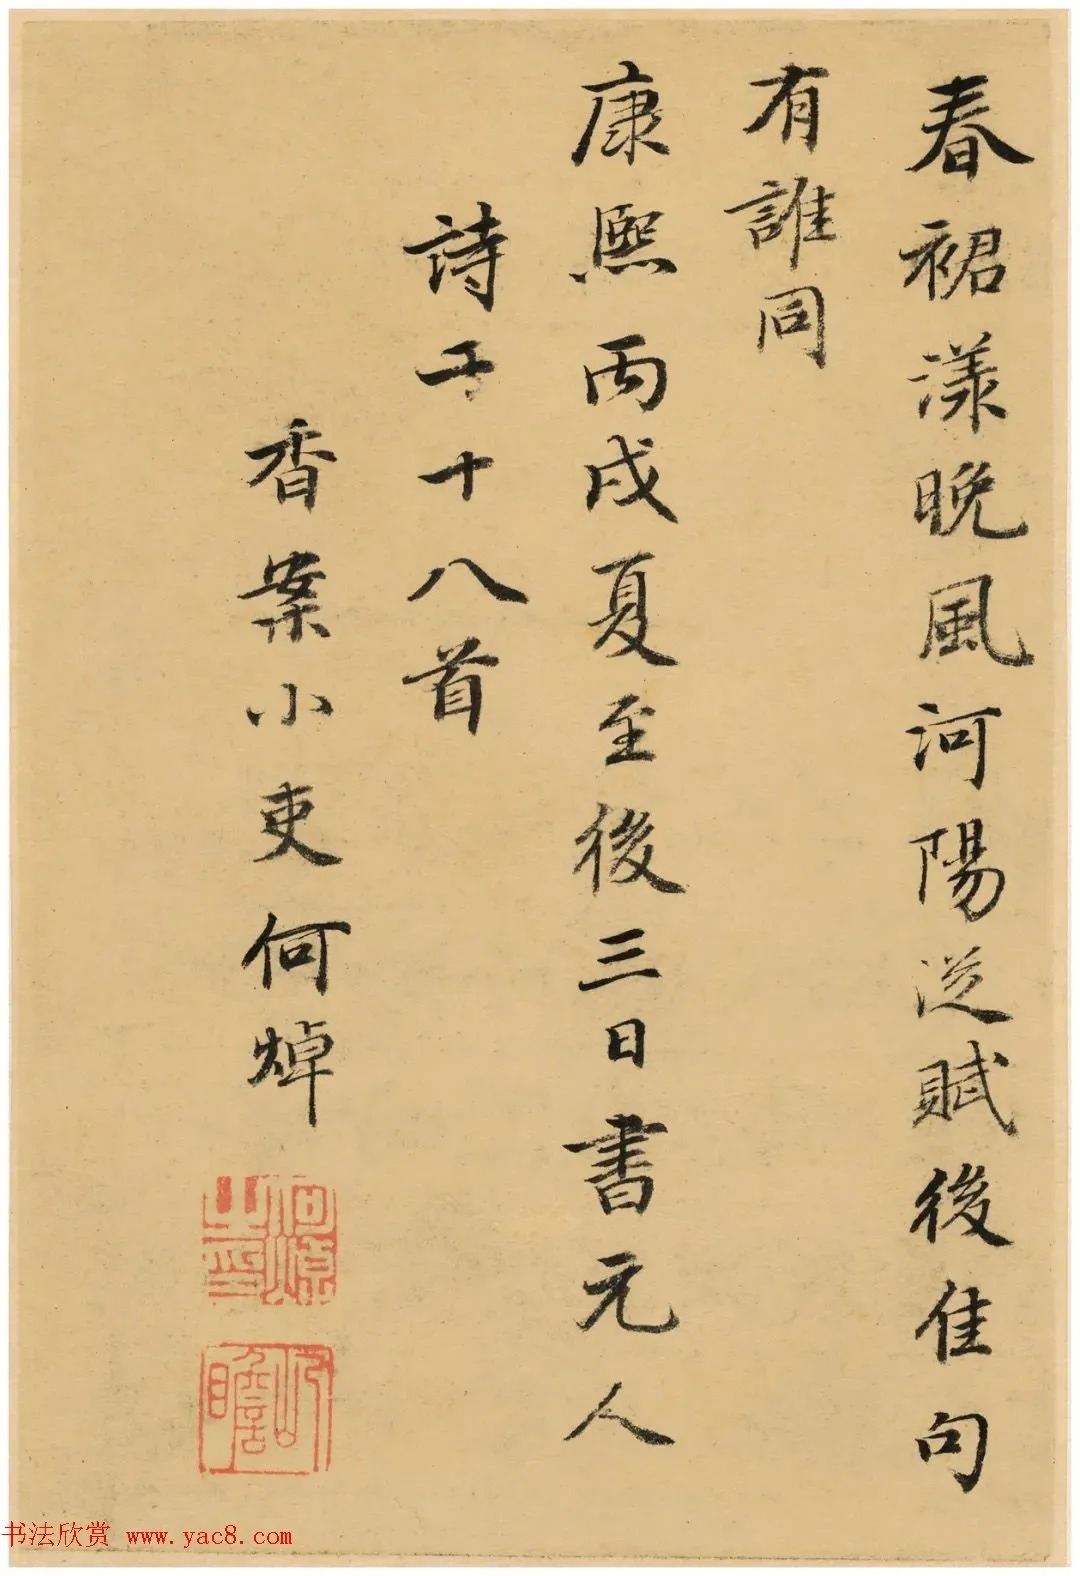 春裙漾晚風河陽従賦後佳句
有誰同
康熙丙戌夏至後三日書元人
詩五十八首
香案小吏何焯
何焯之印
屺瞻
书法欣赏 www.yac8.com